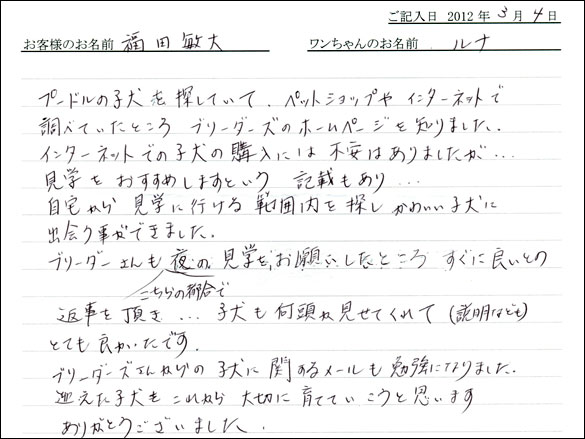 ご記入日 2012年3月4日
お客様のお名前 福田敏夫 ワンちゃんのお名前 ルナ
プードルの子犬を探していて、ペットショップや インターネットで
調べていたところ ブリーダーズのホームページを知りました.
インターネットでの子犬の購入には 不安はありましたが…
見学を おすすめしますという 記載もあり…
自宅から 見学に行ける 範囲内を探し かわいい子犬に
出会う事ができました.
ブリーダーさんも 夜の 見学を、お願いしたところ すぐに良いとの
こちらの都合で
返事を 頂き … 子犬も 何頭か見せてくれて (説明なども)
とても 良かったです.
ブリーダーズさんからの 子犬に 関するメールも 勉強になりました.
迎えた子犬も これから 大切に 育てて いこうと思います
ありがとうございました.